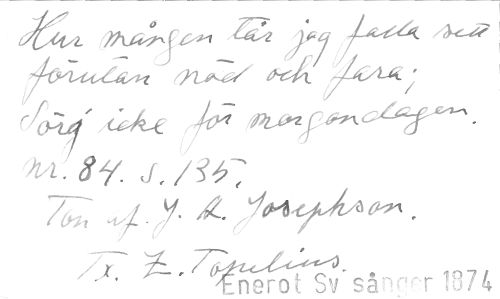 Hur mången tår jag falla sett
förutan nöd och fara;
Sörg icke för morgondagen.
nr. 84. s. 135.
Ton af. J. A. Josephson.
Tx. Z. Topelius.
Enerot Sv sånger 1874